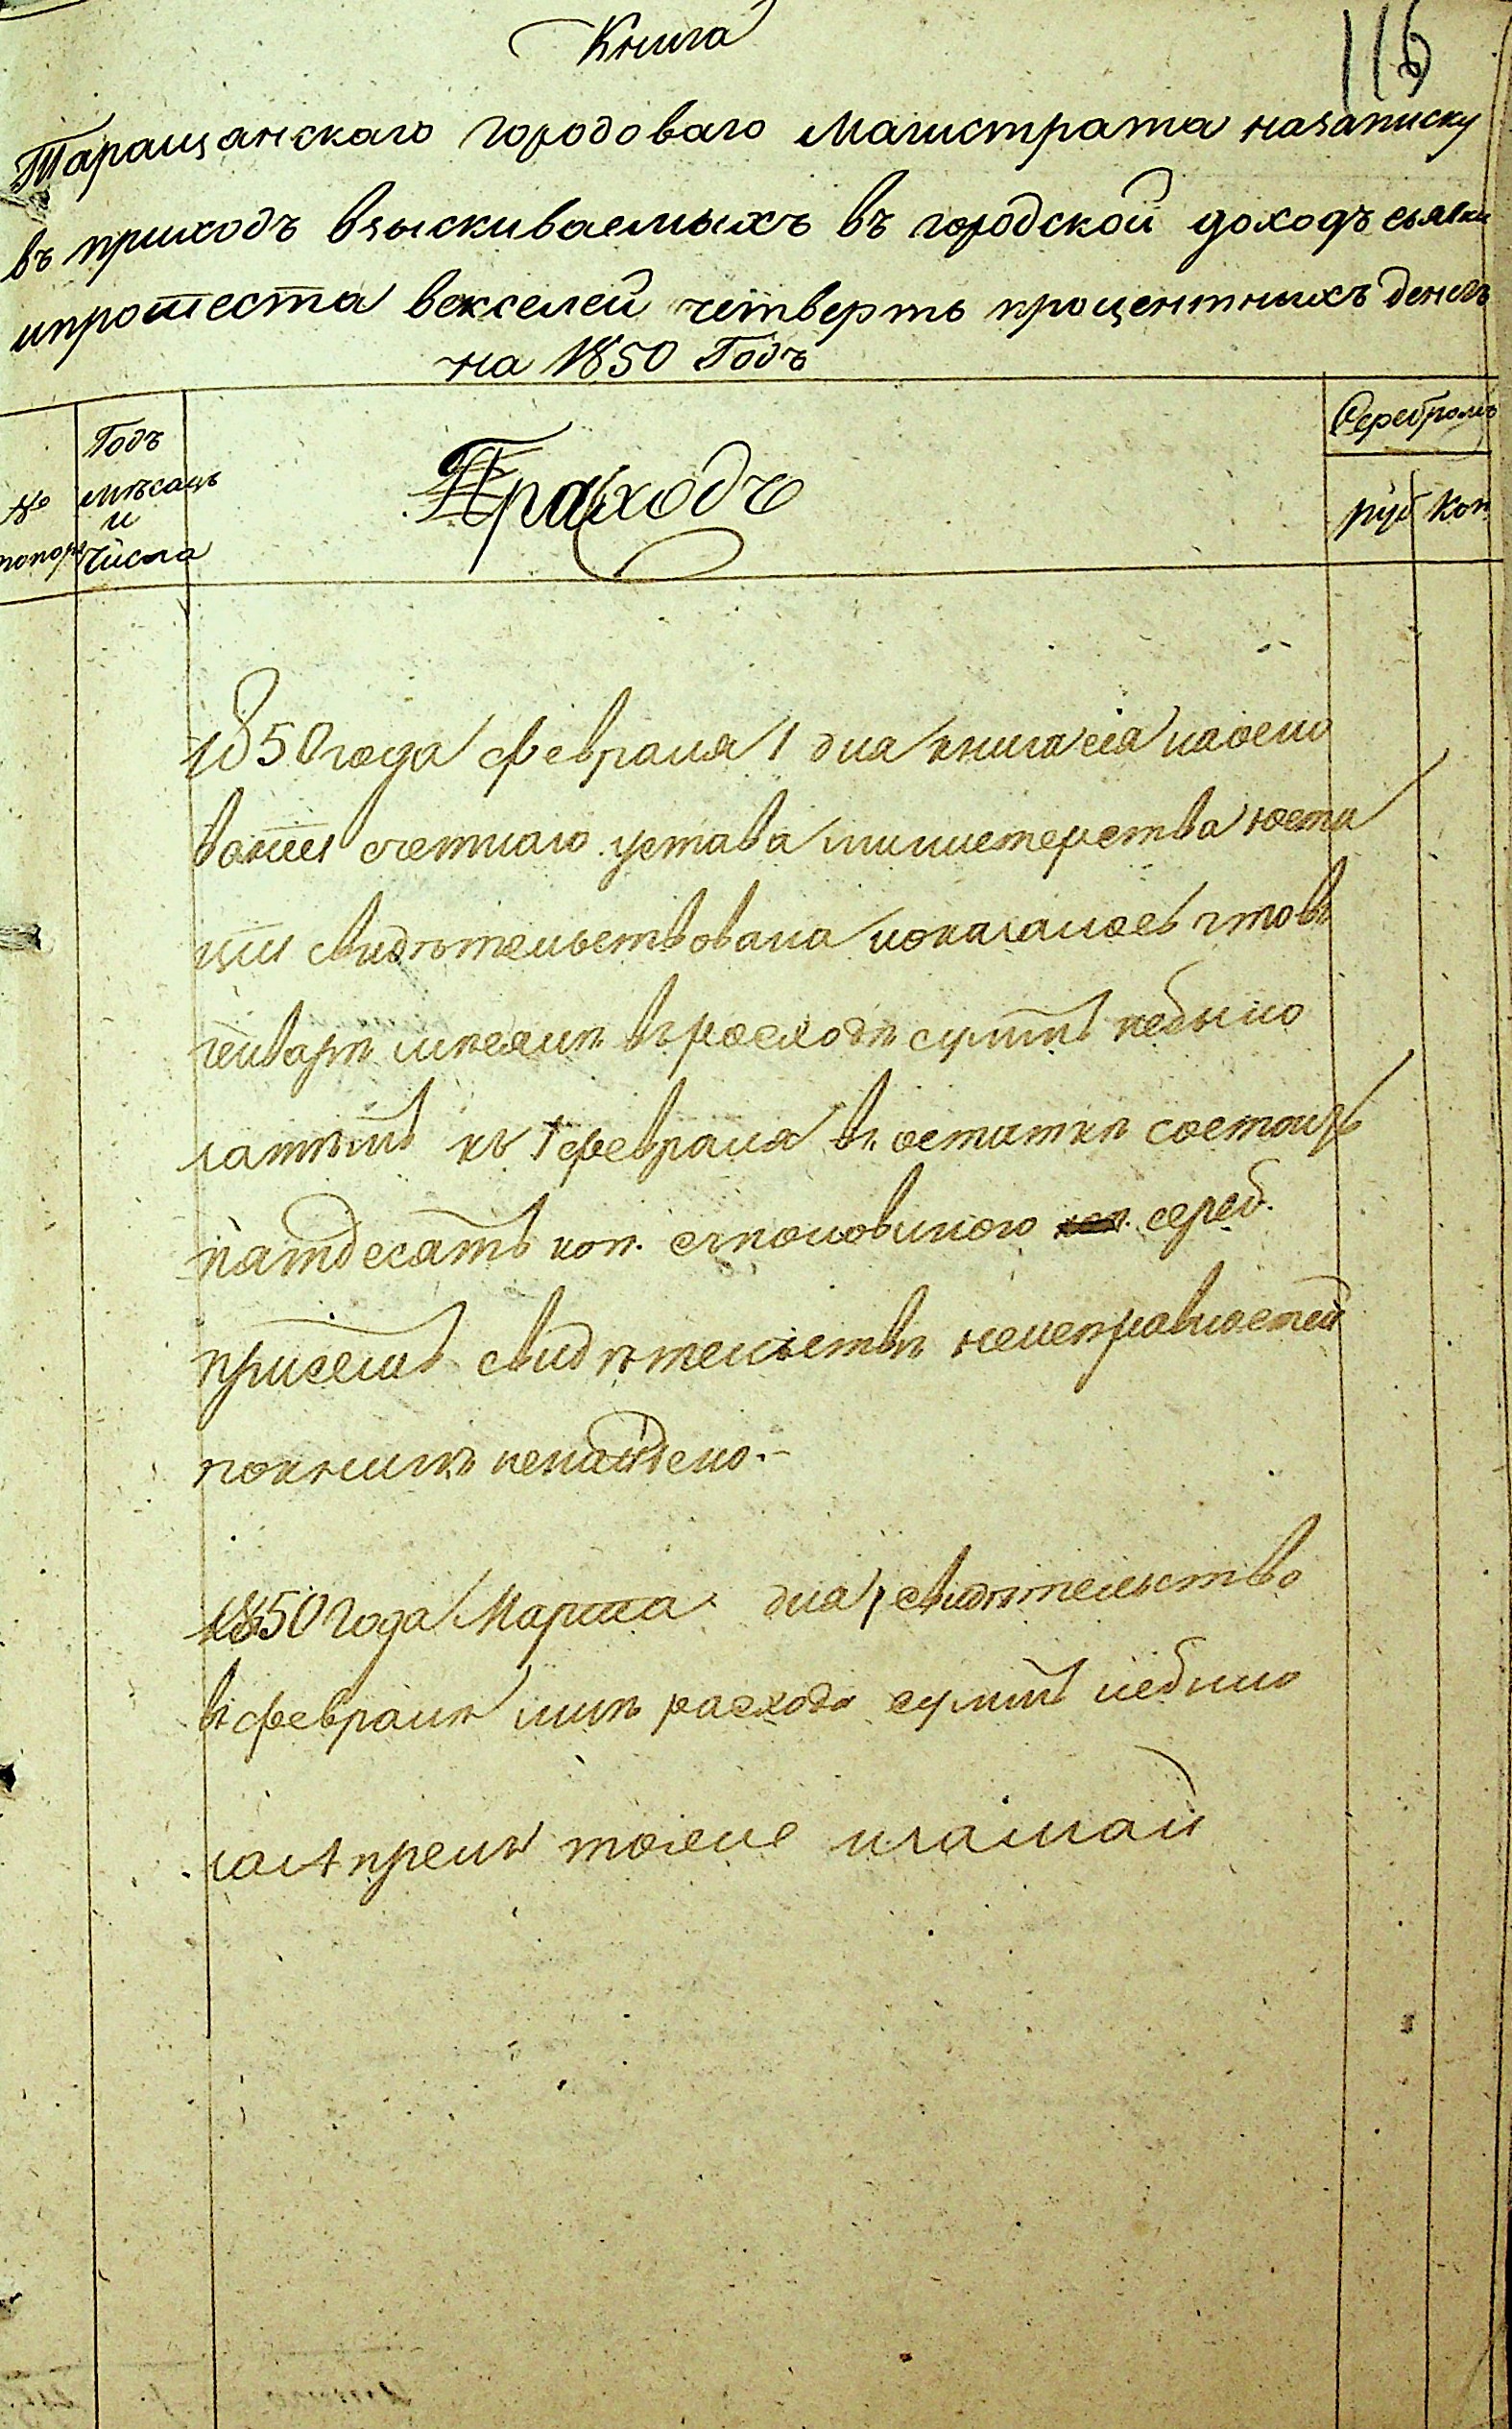 Книга
116
Таращанскаго Городоваго Магистрата назаписку
въ приходъ взыскиваемыхъ въ городской доходъ сьявки
ипротеста векселей четверть процентныхъ денегъ
на 1850 Годъ
№ попор
Годъ мѣсацъ и числа
Приходъ
Серебромъ
руб коп
1850 года февраля 1 дна книга сіа наосно
ваніи счетнаго устава министерства юсти
ціи свидѣтельствована иоказалось чтовъ
генварѣ мѣсяцѣ въ расходѣ суммъ небыло
затѣмъ къ 1 февраля въ остаткѣ состоитъ
патдесатъ коп. съполовиною сереб.
присемъ свидѣтельствѣ неисправностей
покнигѣ ненайдено.-
1850 Года Марта дна свидѣтельство
въ февралѣ расходо суммъ небыло
заАпрель тоже